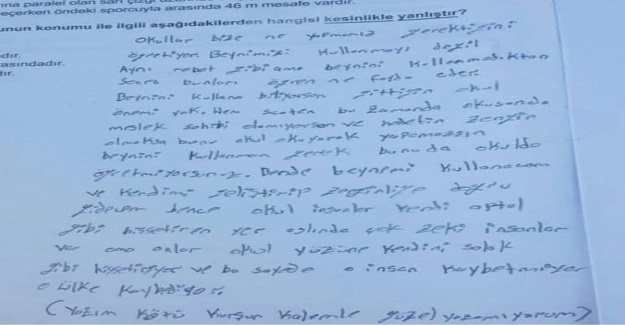 na paralel olan sarı çizgi üze
eçerken öndeki sporcuyla arasında 46 m mesafe vardır.
unun konumu ile ilgili aşağıdakilerden hangisi kesinlikle yanlıştır?
Okullar bize ne yapmamız gerektiğini
dır. öğretiyor Beynimizi kullanmayı değil
asındadır. Aynı robot gibi ama beynini kullanmadıktan
ır. Sonra bunları öğren ne fayda eder
Beynini kullana biliyorsan gittiğin okul
önemi yok. Hem zaten bu zamanda okusanda
meslek sahibi olamıyorsan ve hedefin zengin
olmaksa bunu okul okuyarak yapamazsın
beynini kullanman gerek bunuda okulda
öğretmiyorsunuz. Bende beynimi kullanacam
ve kendimi geliştirip zenginliğe doğru
gidecem bence okul insanlar kendi aptal
gibi hissettiren yer aslında çok zeki insanlar
var ama onlar okul yüzüne kendini salak
gibi hissediyor ve bu sayede o insan kaybetmiyor
o ülke kaybediyor.
(Yazım kötü kurşun kalemle güzel yazamıyorum)